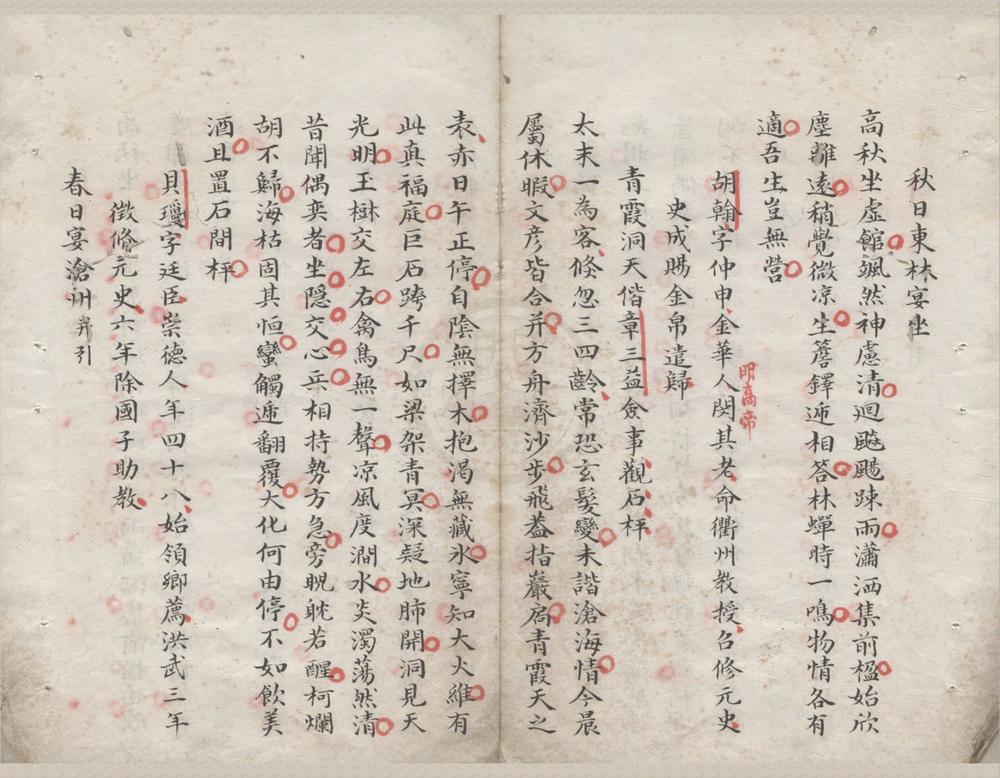 秋日東林宴坐
高秋坐虛館颯然神慮清迴飈颺踈雨瀟洒集前楹始欣
塵離遠稍覺微凉生簷鐸逓相答林蟬時一鳴物情各有
適吾生豈無營
胡翰字仲申金華人閔其老命衢州教授召修元史
明高帝
史成賜金帛遣歸
青霞洞天偕章三益僉事觀石枰
太末一為客倐忽三四齡常恐玄髮變未諧滄海情今晨
屬休暇文彦皆合并方舟濟沙步飛葢指巖扃青霞天之
表赤日午正停自陰無擇木抱渴無藏氷寧知大火維有
此真福庭巨石跨千尺如梁架青冥深疑地肺開洞見天
光明玉樹交左右禽鳥無一聲凉風度澗水炎濁蕩然清
昔聞偶奕者坐隱交心兵相持勢方急旁睨躭若醒柯爛
胡不歸海枯固其恒蠻觸逓翻覆大化何由停不如飲美
酒且置石間枰
貝瓊字廷臣崇德人年四十八始領鄉薦洪武三年
徵脩元史六年除國子助教
春日宴滄洲并引